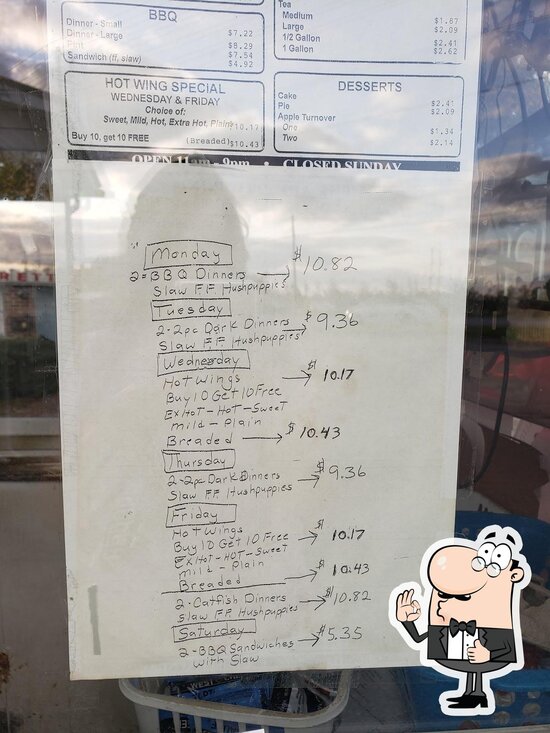 BBQ
Dinner - Small $7.22
Dinner - Large $8.29
Pint $7.54
Sandwich (ff, slaw) $4.92
Tea
Medium $1.87
Large $2.09
1/2 Gallon $2.41
1 Gallon $2.62
HOT WING SPECIAL
WEDNESDAY & FRIDAY
Choice of:
Sweet, Mild, Hot, Extra Hot, Plain $10.17
Buy 10, get 10 FREE (Breaded) $10.43
DESSERTS
Cake $2.41
Pie $2.09
Apple Turnover
One $1.34
Two $2.14
OPEN 11am - 9pm • CLOSED SUNDAY
Monday
2-BBQ Dinners $10.82
Slaw F.F. Hushpuppies
Tuesday
2-2pc Dark Dinners $9.36
Slaw F.F. Hushpuppies
Wednesday
Hot Wings $10.17
Buy 10 Get 10 Free
ExHoT-HoT-SweeT
mild - Plain
Breaded $10.43
Thursday
2-2pc Dark Dinners $9.36
Slaw F.F. Hushpuppies
Friday
Hot Wings
Buy 10 Get 10 Free $10.17
ExHoT-HOT-SweeT
mild - Plain
Breaded $10.43
2-Catfish Dinners $10.82
Slaw F.F. Hushpuppies
Saturday
2-BBQ Sandwiches $5.35
with Slaw